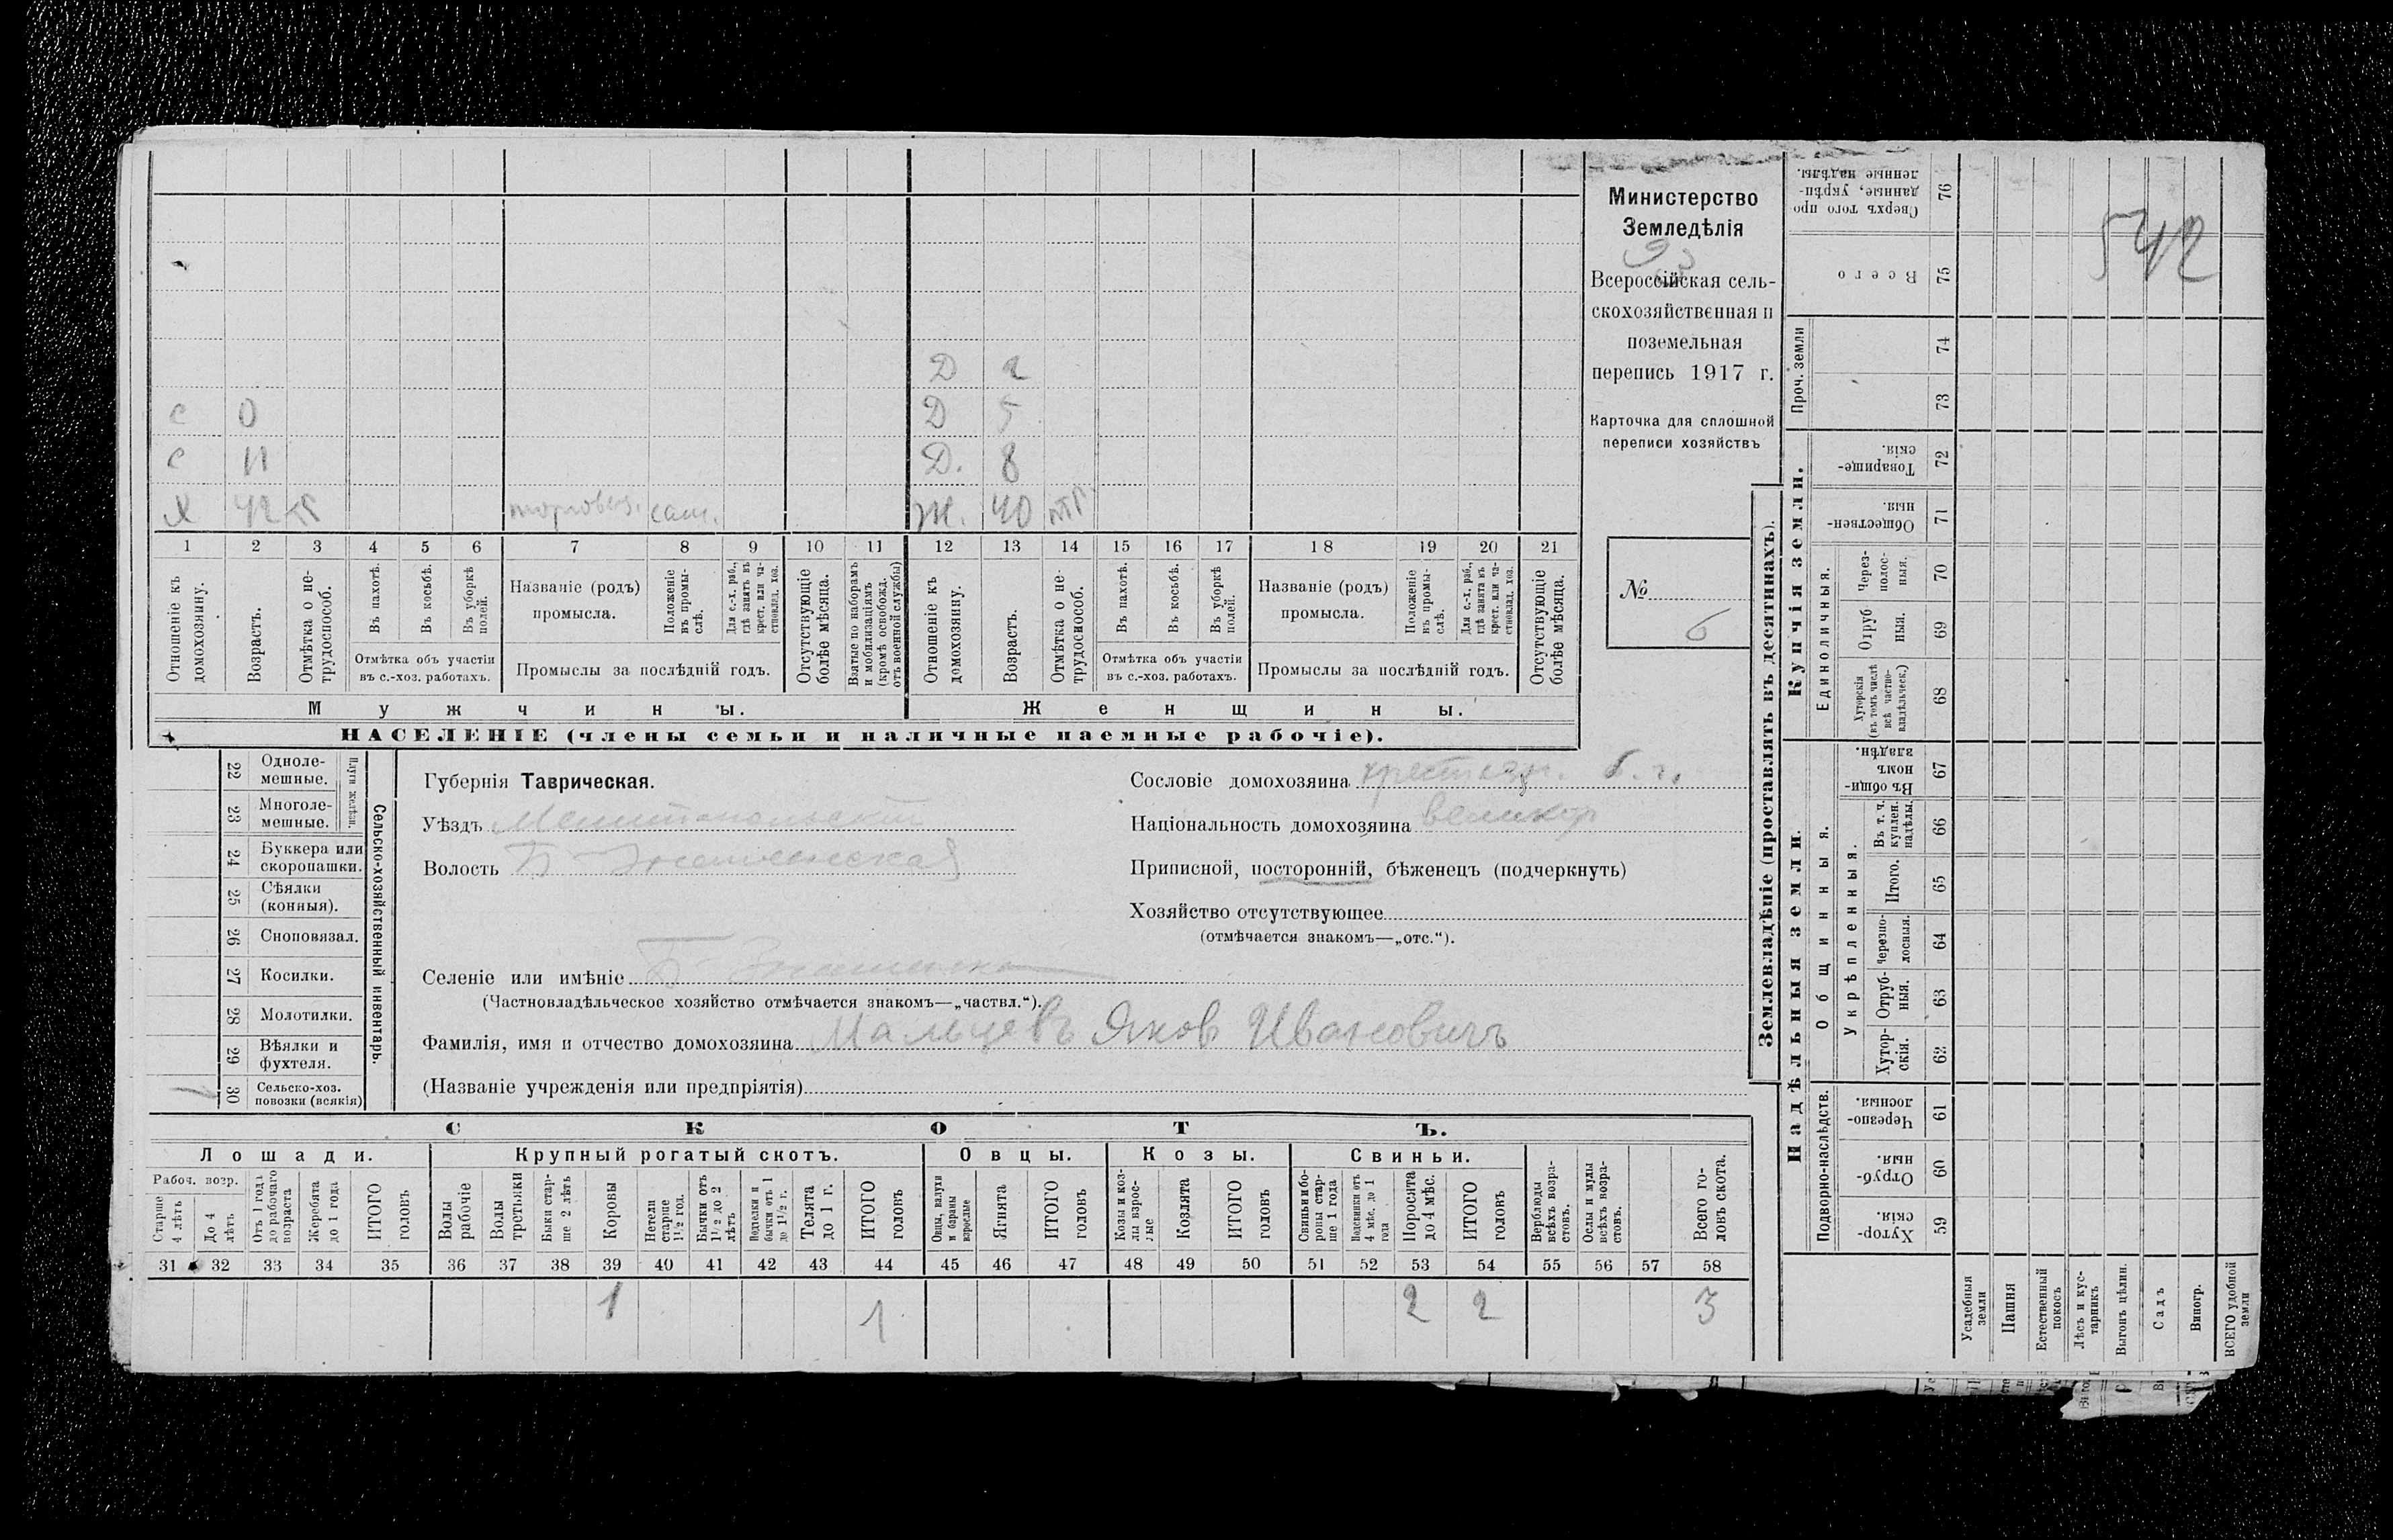 Д 2
с 0 Д 5
с 11 Д. 8
х 42 торговец. сам. Ж. 40
1 2 3 4 5 6 7 8 9 10 11 12 13 14 15 16 17 18 19 20 21
Отношеніе къ домохозяину.
Возрастъ.
Отмѣтка о не-
трудоспособ.
Въ пахотѣ.
Въ косьбѣ.
Въ уборкѣ
полей.
Отмѣтка объ участіи
въ с.-хоз. работахъ.
Названіе (родъ)
промысла.
Положеніе
въ промы-
слѣ.
Для с.-х. раб.,
гдѣ занятъ въ
крест. или ча-
стновлад. хоз.
Промыслы за послѣдній годъ.
Отсутствующіе
болѣе мѣсяца.
Взятые по наборамъ
и мобилизаціямъ
(кромѣ освобожд.
отъ военной службы)
Отношеніе къ
домохозяину.
Возрастъ.
Отмѣтка о не-
трудоспособ.
Въ пахотѣ.
Въ косьбѣ.
Въ уборкѣ
полей.
Отмѣтка объ участіи
въ с.-хоз. работахъ.
Названіе (родъ)
промысла.
Положеніе
въ промы-
слѣ.
Для с.-х. раб.,
гдѣ занята въ
крест. или ча-
стновлад. хоз.
Промыслы за послѣдній годъ.
Отсутствующіе
болѣе мѣсяца.
Мужчины.
Женщины.
НАСЕЛЕНІЕ (члены семьи и наличные наемные рабочіе).
Министерство
Земледѣлія
93
Всероссійская сель-
скохозяйственная и
поземельная
перепись 1917 г.
Карточка для сплошной
переписи хозяйствъ
№
6
22 Одноле-
мешные.
23 Многоле-
мешные.
Плуги желѣзн.
24 Буккера или
скоропашки.
25 Сѣялки
(конныя).
26 Сноповязал.
27 Косилки.
28 Молотилки.
29 Вѣялки и
фухтеля.
1 30 Сельско-хоз.
повозки (всякія)
Сельско-хозяйственный инвентарь.
Губернія Таврическая.
Уѣздъ Мелитопольскій
Волость Б-Знаменская
Селеніе или имѣніе Б-Знаменка
(Частновладѣльческое хозяйство отмѣчается знакомъ—„частвл.“).
Фамилія, имя и отчество домохозяина Мальцевъ Яковъ Ивановичъ
(Названіе учрежденія или предпріятія)
Сословіе домохозяина крестьян. б.г.
Національность домохозяина великор
Приписной, посторонній, бѣженецъ (подчеркнуть)
Хозяйство отсутствующее
(отмѣчается знакомъ—„отс.“).
СКОТЪ.
Лошади. Крупный рогатый скотъ. Овцы. Козы. Свиньи.
Рабоч. возр.
Старше
4 лѣтъ
До 4
лѣтъ
Отъ 1 года
до рабочаго
возраста
Жеребята
до 1 года
ИТОГО
головъ
Волы
рабочіе
Волы
третьяки
Быки стар-
ше 2 лѣтъ
Коровы
Нетели
старше
1½ год.
Бычки отъ
1½ до 2
лѣтъ
Подтелки и
бычки отъ 1
до 1½ г.
Телята
до 1 г.
ИТОГО
головъ
Овцы, валухи
и бараны
взрослые
Ягнята
ИТОГО
головъ
Козы и коз-
лы взрос-
лые
Козлята
ИТОГО
головъ
Свиньи и бо-
ровы стар-
ше 1 года
Подсвинки отъ
4 мѣс. до 1
года
Поросята
до 4 мѣс.
ИТОГО
головъ
Верблюды
всѣхъ возра-
стовъ.
Ослы и мулы
всѣхъ возра-
стовъ.
Всего го-
ловъ скота.
31 32 33 34 35 36 37 38 39 40 41 42 43 44 45 46 47 48 49 50 51 52 53 54 55 56 57 58
1 1 2 2 3
Землевладѣніе (проставлять въ десятинахъ).
Надѣльныя земли.
Купчія земли.
Проч. земли
Подворно-наслѣдств.
Общинныя.
Укрѣпленныя.
Единоличныя.
Сверхъ того про
данные, укрѣп-
ленные надѣлы.
76
Всего
75
74
73
Товарище-
скія.
72
Обществен-
ныя.
71
Через-
полос-
ныя.
70
Отруб
ныя.
69
Хуторскія
(въ томъ числѣ
всѣ частно-
владѣльческ.)
68
Въ общи-
номъ
владѣн.
67
Въ т. ч.
куплен.
надѣлы.
66
Итого.
65
Черезпо-
лосныя.
64
Отруб-
ныя.
63
Хутор-
скія.
62
Черезпо-
лосныя.
61
Отруб-
ныя.
60
Хутор-
скія.
59
Усадебныя
земли
Пашня
Естественный
покосъ
Лѣсъ и кус-
тарникъ
Выгонъ цѣлин.
Садъ
Виногр.
ВСЕГО удобной
земли
542